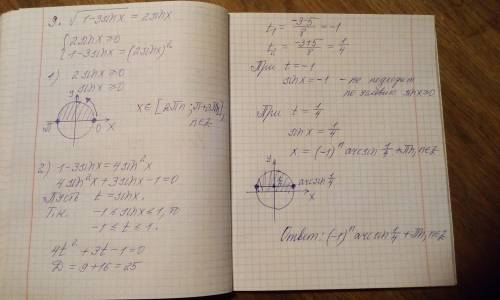 9. √1-3sinx = 2sinx
{ 2sinx ≥ 0
{ 1-3sinx = (2sinx)²
1) 2sinx ≥ 0
sinx ≥ 0
y
π 0 x
x ∈ [2πn; π+2πn], n∈Z
2) 1-3sinx = 4sin²x
4sin²x+3sinx-1=0
Пусть t = sinx.
Т.к. -1 ≤ sinx ≤ 1, то
-1 ≤ t ≤ 1.
4t² + 3t -1=0
D = 9+16 = 25
t₁ = -3-5/8 = -1
t₂ = -3+5/8 = 1/4
При t = -1
sinx = -1 - не подходит
по условию sinx≥0
При t = 1/4
sinx = 1/4
x = (-1)ⁿ arcsin 1/4 + πn, n∈Z
y
arcsin 1/4
x
Ответ: (-1)ⁿ arcsin 1/4 + πn, n∈Z